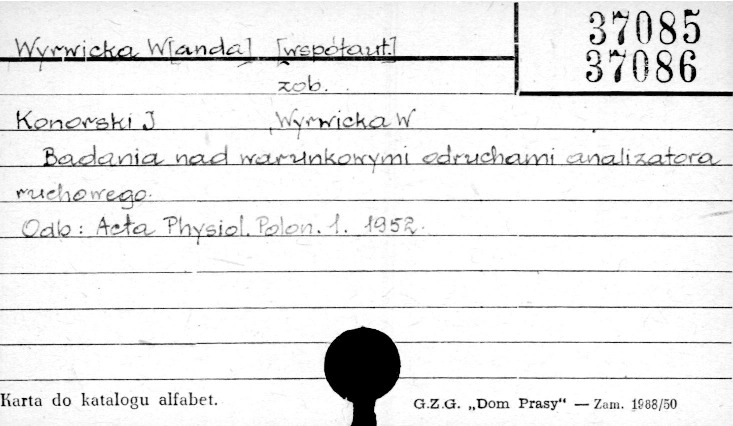 Wyrwicka W[anda] [współaut.]
37085
37086
zob.
Konorski J , Wyrwicka W
Badania nad warunkowymi odruchami analizatora
ruchowego.
Odb: Acta Physiol. Polon. 1. 1952.
Karta do katalogu alfabet.
G.Z.G. „Dom Prasy“ — Zam. 1988/50